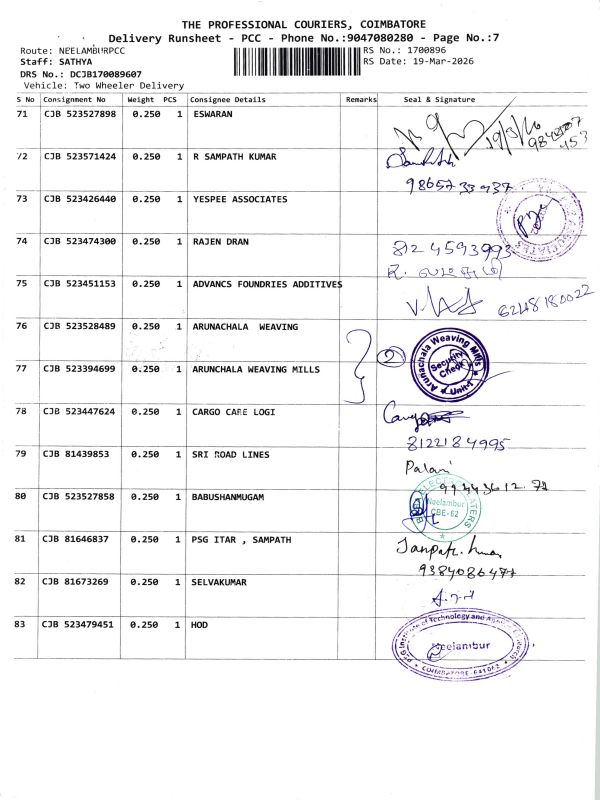 THE PROFESSIONAL COURIERS, COIMBATORE
Delivery Runsheet - PCC - Phone No.:9047080280 - Page No.:7
Route: NEELAMBURPCC RS No.: 1700896
Staff: SATHYA RS Date: 19-Mar-2026
DRS No.: DCJB170089607
Vehicle: Two Wheeler Delivery
S No Consignment No Weight PCS Consignee Details Remarks Seal & Signature
71 CJB 523527898 0.250 1 ESWARAN 19/3/26
72 CJB 523571424 0.250 1 R SAMPATH KUMAR
9865733437
73 CJB 523426440 0.250 1 YESPEE ASSOCIATES
74 CJB 523474300 0.250 1 RAJEN DRAN 8124593993
75 CJB 523451153 0.250 1 ADVANCS FOUNDRIES ADDITIVES
6248180022
76 CJB 523528489 0.250 1 ARUNACHALA WEAVING 2
Arunachala Weaving Mills
Security Check
Unit-I
77 CJB 523394699 0.250 1 ARUNCHALA WEAVING MILLS
78 CJB 523447624 0.250 1 CARGO CARE LOGI
8122184995
79 CJB 81439853 0.250 1 SRI ROAD LINES Palani
80 CJB 523527858 0.250 1 BABUSHANMUGAM
Neelambur
CBE-62
81 CJB 81646837 0.250 1 PSG ITAR , SAMPATH Sanpath Kumar
9384086477
82 CJB 81673269 0.250 1 SELVAKUMAR
83 CJB 523479451 0.250 1 HOD
Neelambur
COIMBATORE-641062